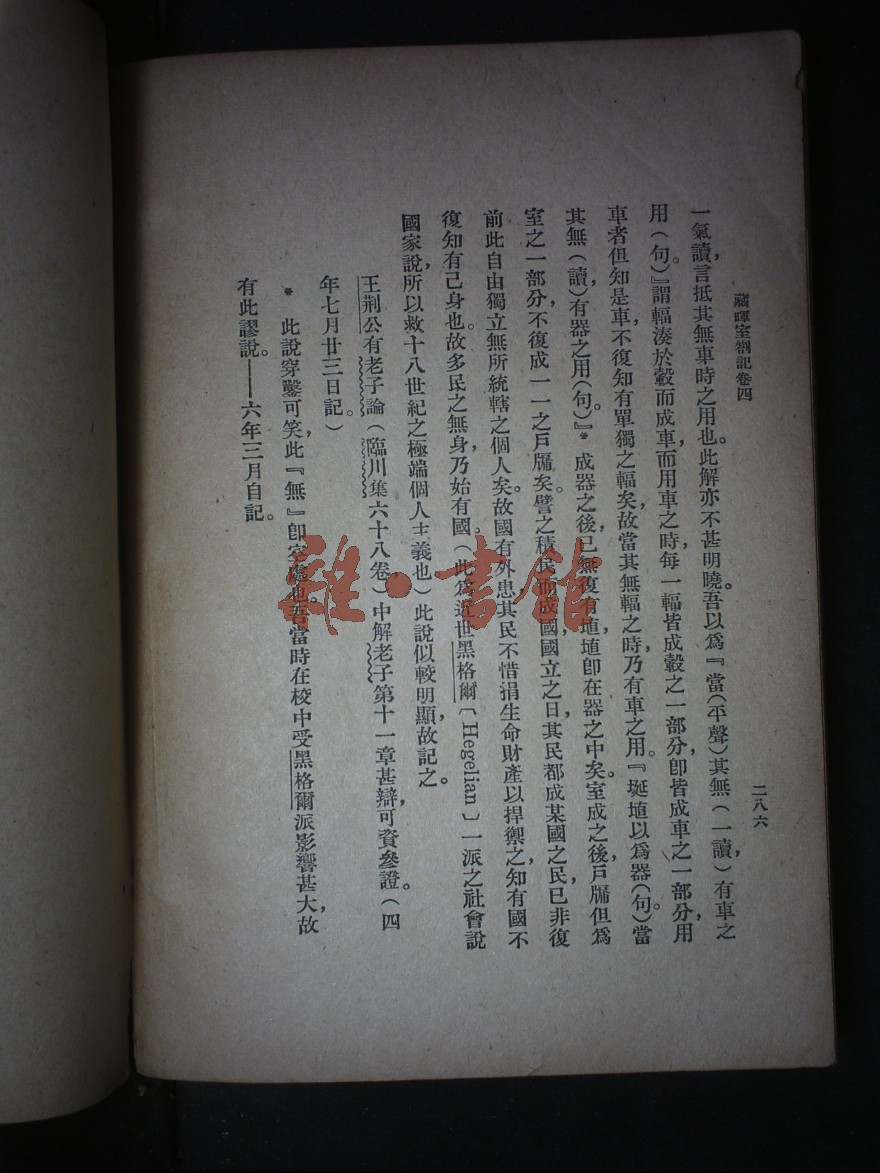 藏暉室劄記卷四
二八六
一氣讀，言抵其無車時之用也。此解亦不甚明曉。吾以爲『當（平聲）其無（一讀），有車之
用（句）。』謂輻湊於轂而成車，而用車之時，每一輻皆成轂之一部分，卽皆成車之一部分，用
車者但知是車，不復知有單獨之輻矣，故當其無輻之時，乃有車之用。『埏埴以爲器（句）。當
其無（讀），有器之用（句）。』＊成器之後，已無復有埴，埴卽在器之中矣。室成之後，戶牖但爲
室之一部分，不復成一一之戶牖矣。譬之積民而成國，國立之日，其民都成某國之民，已非復
前此自由獨立無所統轄之個人矣。故國有外患其民不惜捐生命財產以捍禦之，知有國不
復知有己身也。故多民之無身，乃始有國。（此爲近世黑格爾〔Hegelian〕一派之社會說
國家說，所以救十八世紀之極端個人主義也）此說似較明顯，故記之。
王荊公有老子論（臨川集六十八卷），中解老子第十一章甚辯，可資參證。（四
年七月廿三日記。）
＊此說穿鑿可笑，此『無』卽空處也。吾當時在校中受黑格爾派影響甚大，故
有此謬說。——六年三月自記。
雜·書館